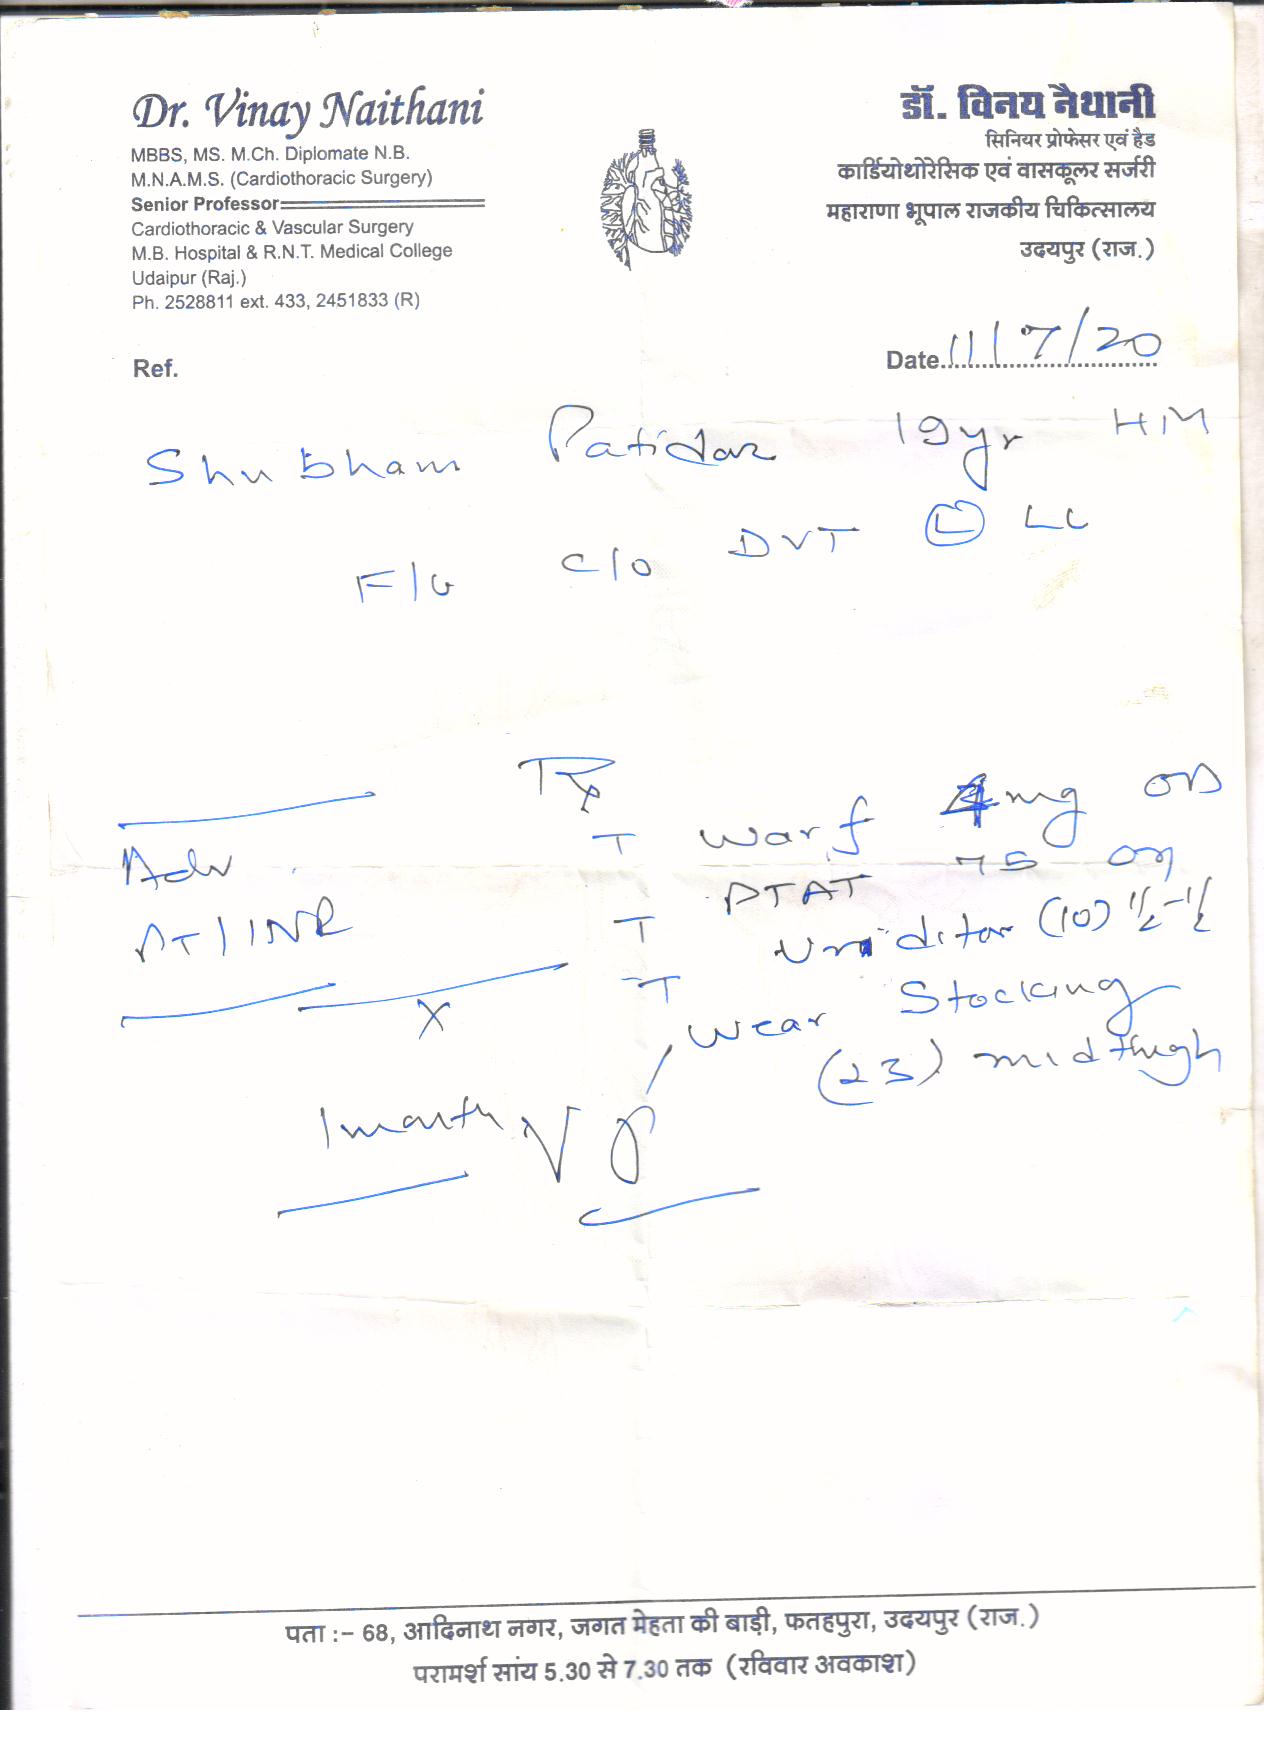 Dr. Vinay Naithani
MBBS, MS. M.Ch. Diplomate N.B.
M.N.A.M.S. (Cardiothoracic Surgery)
Senior Professor
Cardiothoracic & Vascular Surgery
M.B. Hospital & R.N.T. Medical College
Udaipur (Raj.)
Ph. 2528811 ext. 433, 2451833 (R)
डॉ. विनय नैथानी
सिनियर प्रोफेसर एवं हैड
कार्डियोथोरेसिक एवं वासकूलर सर्जरी
महाराणा भूपाल राजकीय चिकित्सालय
उदयपुर (राज.)
Ref.
Date 11/7/20
Shubham Patidar 19yr HM
F/U C/O DVT (L) LL
Adv
PT/INR
X
T warf 4mg OD
T PTAT 75
T (10) 1/2-1/2
wear Stocking
(23) midthigh
1 month
पता :- 68, आदिनाथ नगर, जगत मेहता की बाड़ी, फतहपुरा, उदयपुर (राज.)
परामर्श सांय 5.30 से 7.30 तक (रविवार अवकाश)